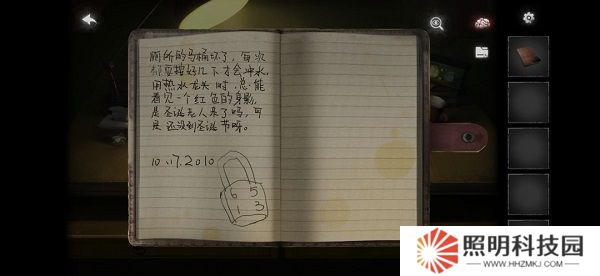 厕所的马桶坏了，每次
都要按好几下才会冲水，
用热水龙头时，总能
看见一个红色的身影，
是圣诞老人来了吗，可
是还没到圣诞节呀。
10.17.2010
6 5
1 3
照明科技园
WWW.HHZMKJ.COM